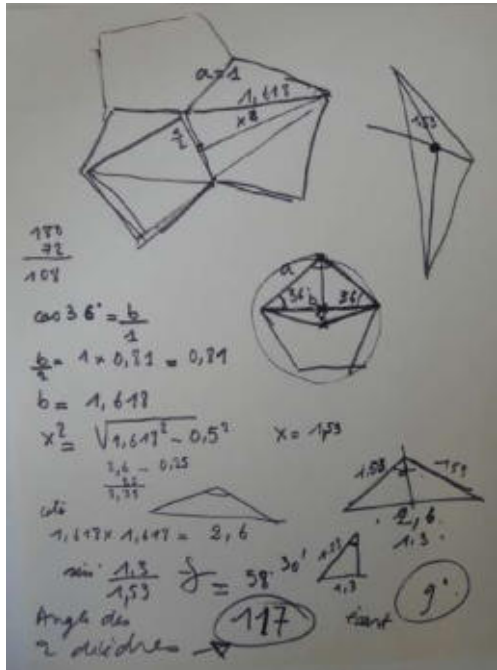 a=1
1,618
x²
1/2
153
180
72
108
a
36°
b
36
cos 36° = b/1
b/2 = 1 x 0,81 = 0,81
b = 1,618
x² = √1,618² - 0,5²
x = 1,53
2,6 - 0,25
coté
1,617 x 1,617 = 2,6
1,53
153
2,6
1.3
sin 1,3/1,53
= 58° 30'
1,53
1,3
Angle des
2 dièdres
117
écart
9°